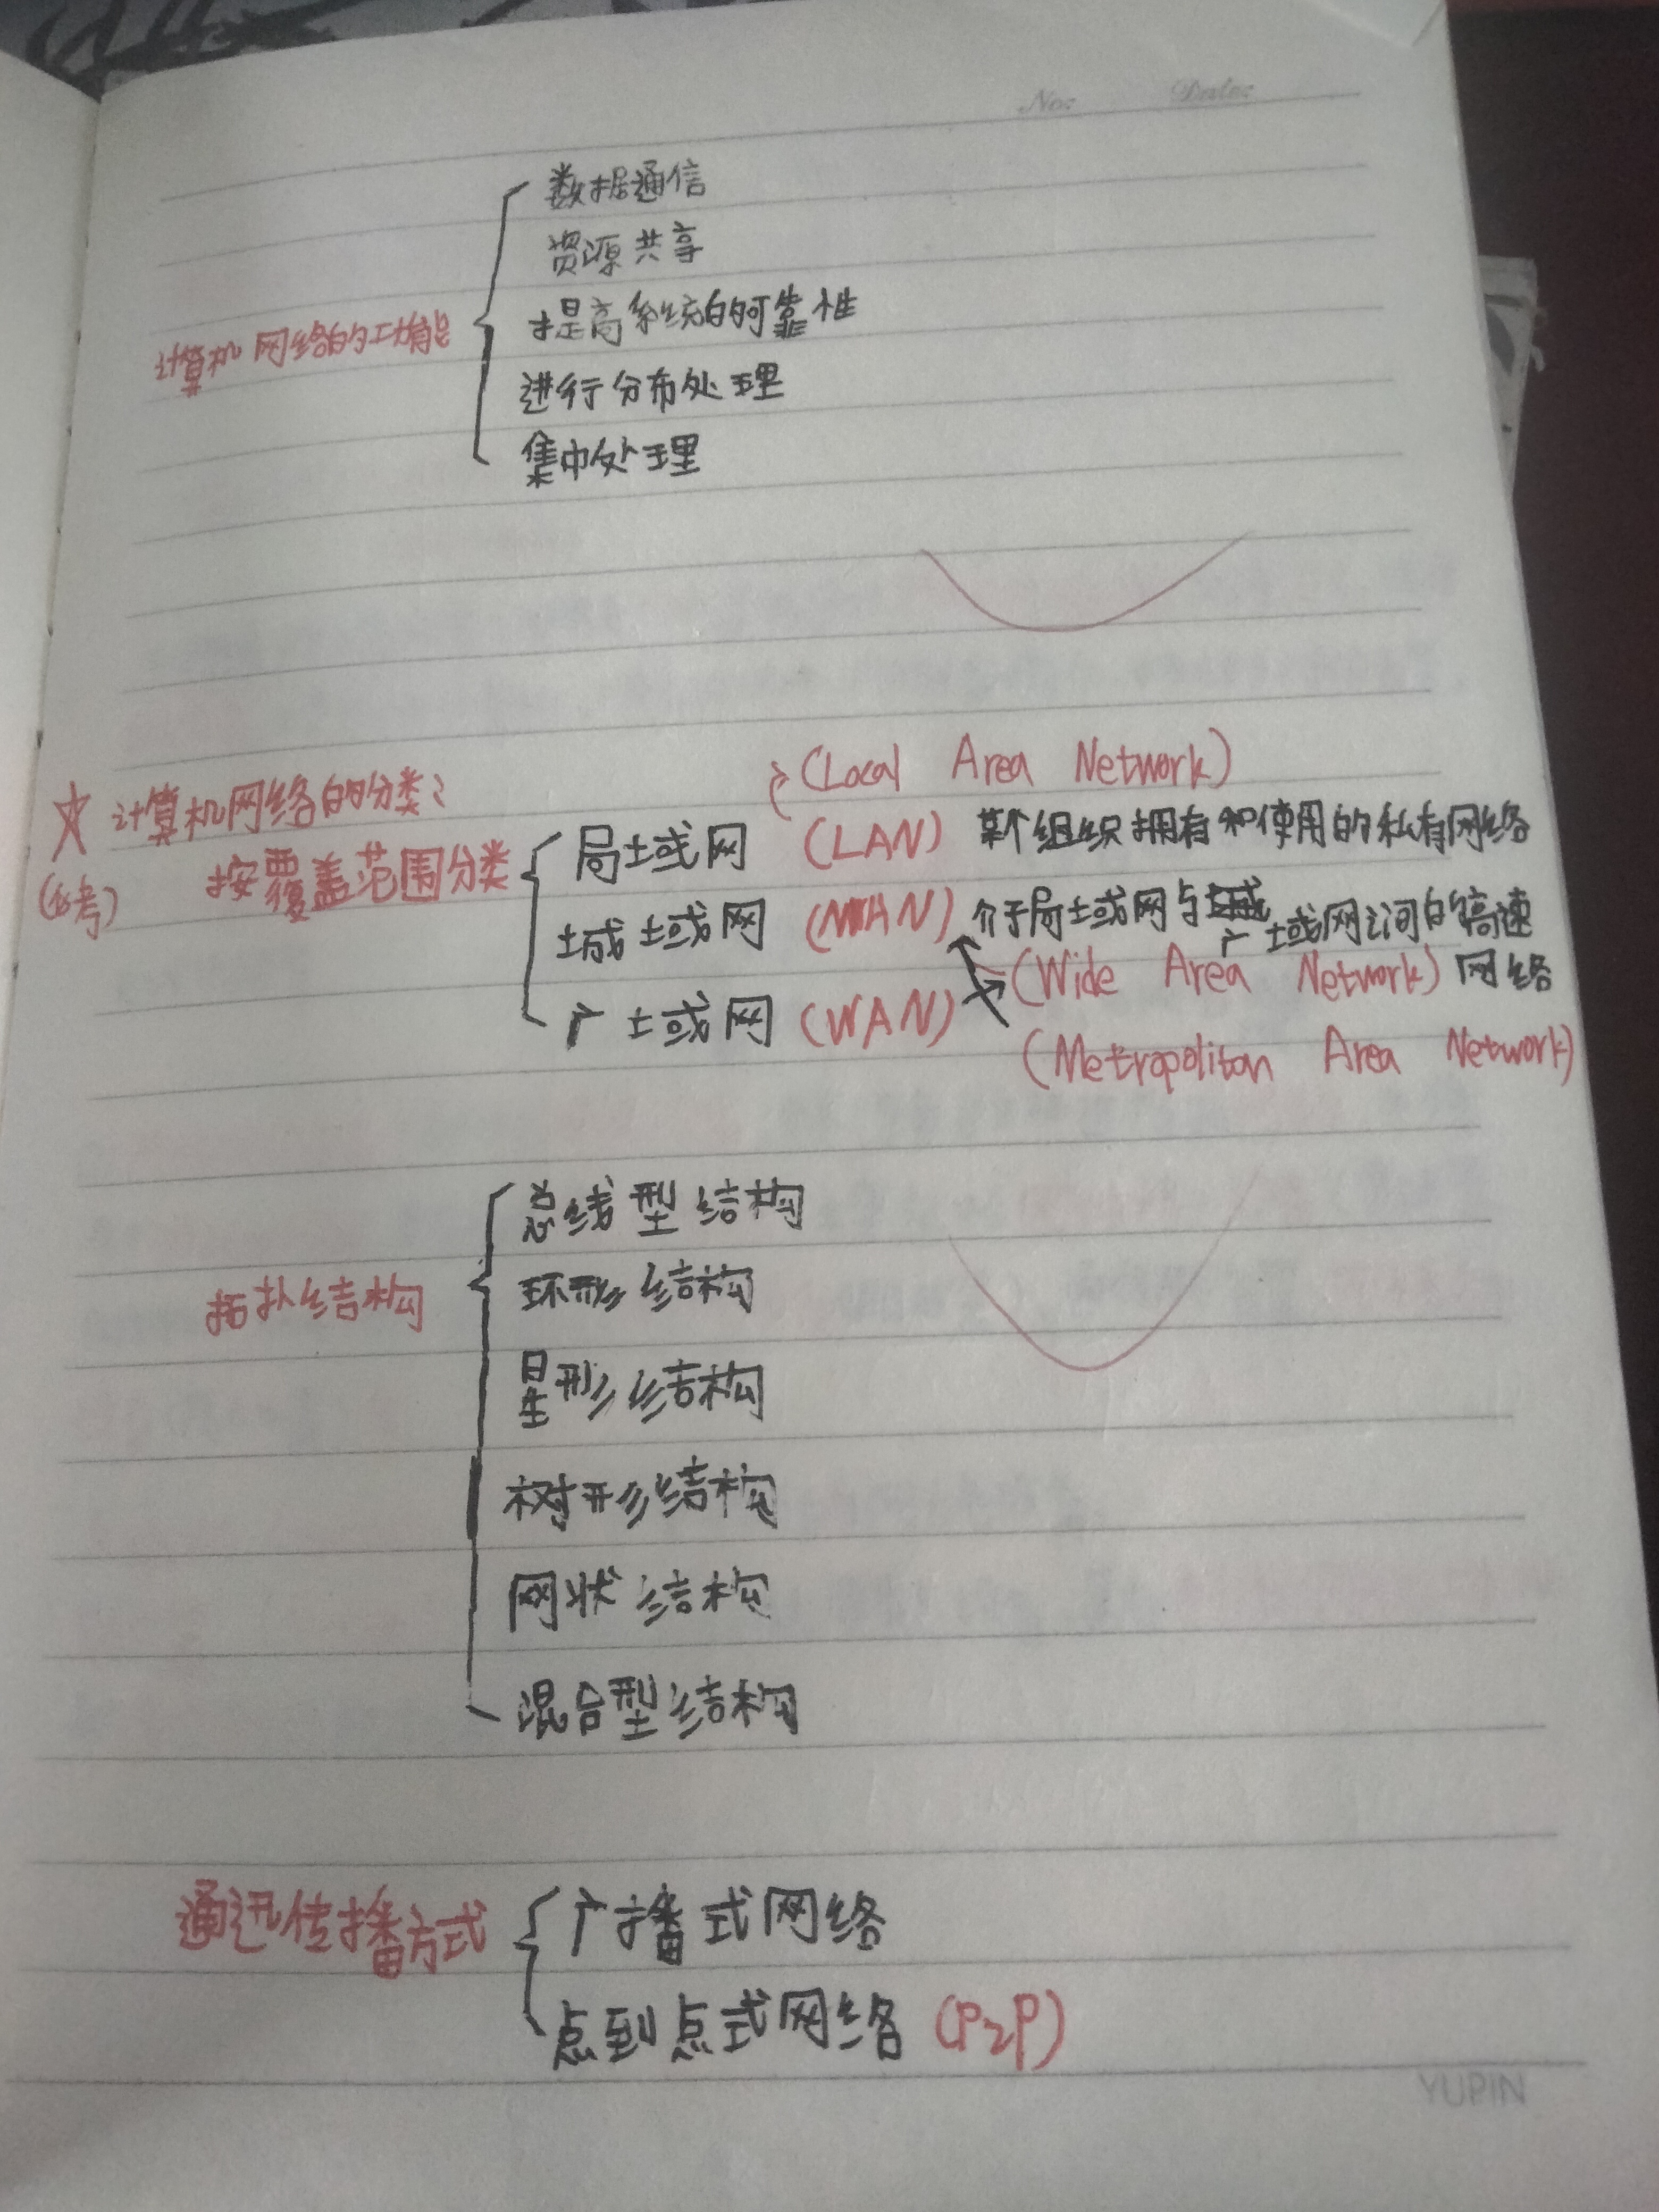 No: Date:
数据通信
资源共享
提高系统的可靠性
计算机网络的功能
进行分布处理
集中处理
(Local Area Network)
☆ 计算机网络的分类:
(必考) 按覆盖范围分类
局域网 (LAN) 某个组织拥有和使用的私有网络
城域网 (MAN) 介于局域网与广域网之间的高速
网络
(Wide Area Network)
广域网 (WAN)
(Metropoliton Area Network)
总线型结构
环形结构
拓扑结构
星形结构
树形结构
网状结构
混合型结构
通讯传播方式
广播式网络
点到点式网络 (P2P)
YUPIN